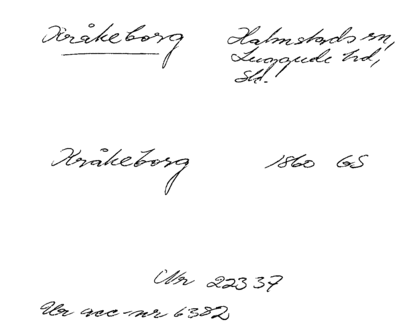 Kråkeborg Halmstads sn,
Luggude hd,
Sk.
Kråkeborg 1860 GS
Nr 22337
Ur acc-nr 6382